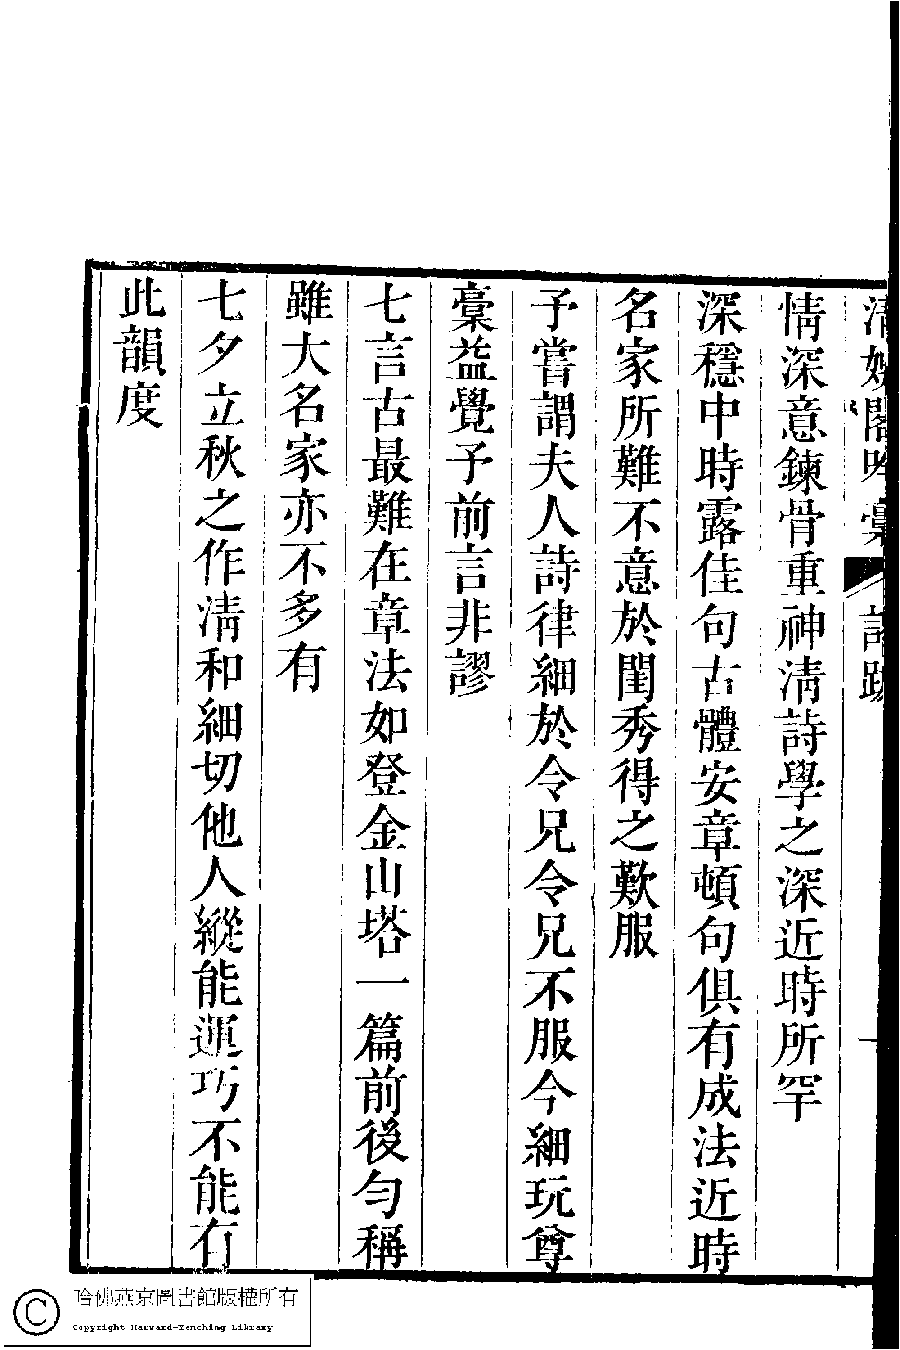 清娛閣吟藁
情深意鍊骨重神淸詩學之深近時所罕
深穩中時露佳句古體安章頓句俱有成法近時
名家所難不意於閨秀得之歎服
予嘗謂夫人詩律細於令兄令兄不服今細玩尊
藁益覺予前言非謬
七言古最難在章法如登金山塔一篇前後勻稱
雖大名家亦不多有
七夕立秋之作淸和細切他人縱能運巧不能有
此韻度
哈佛燕京圖書館版權所有
Copyright Harvard-Yenching Library